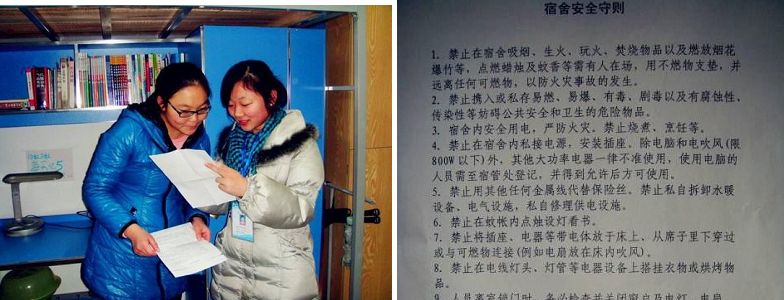 宿舍安全守则
1. 禁止在宿舍吸烟、生火、玩火、焚烧物品以及燃放烟花
爆竹等，点燃蜡烛及蚊香等需有人在场，用不燃物支垫，并
远离任何可燃物，以防火灾事故的发生。
2. 禁止携入或私存易燃、易爆、有毒、剧毒以及有腐蚀性、
传染性等妨碍公共安全和卫生的危险物品。
3. 宿舍内安全用电，严防火灾。禁止烧煮、烹饪等。
4. 禁止在宿舍内私接电源，安装插座。除电脑和电吹风(限
800W以下)外，其他大功率电器一律不准使用，使用电脑的
人员需至宿管处登记，并得到允许后方可使用。
5. 禁止用其他任何金属线代替保险丝。禁止私自拆卸水暖
设备、电气设施，私自修理供电设施。
6. 禁止在蚊帐内点烛设灯看书。
7. 禁止将插座、电器等带电体放于床上、从席子里下穿过
或与可燃物连接(例如电扇放在床内吹风)。
8. 禁止在电线灯头、灯管等电器设备上搭挂衣物或烘烤物
品。
9. 人员离室锁门时，务必检查并关闭窗户及电灯、电扇